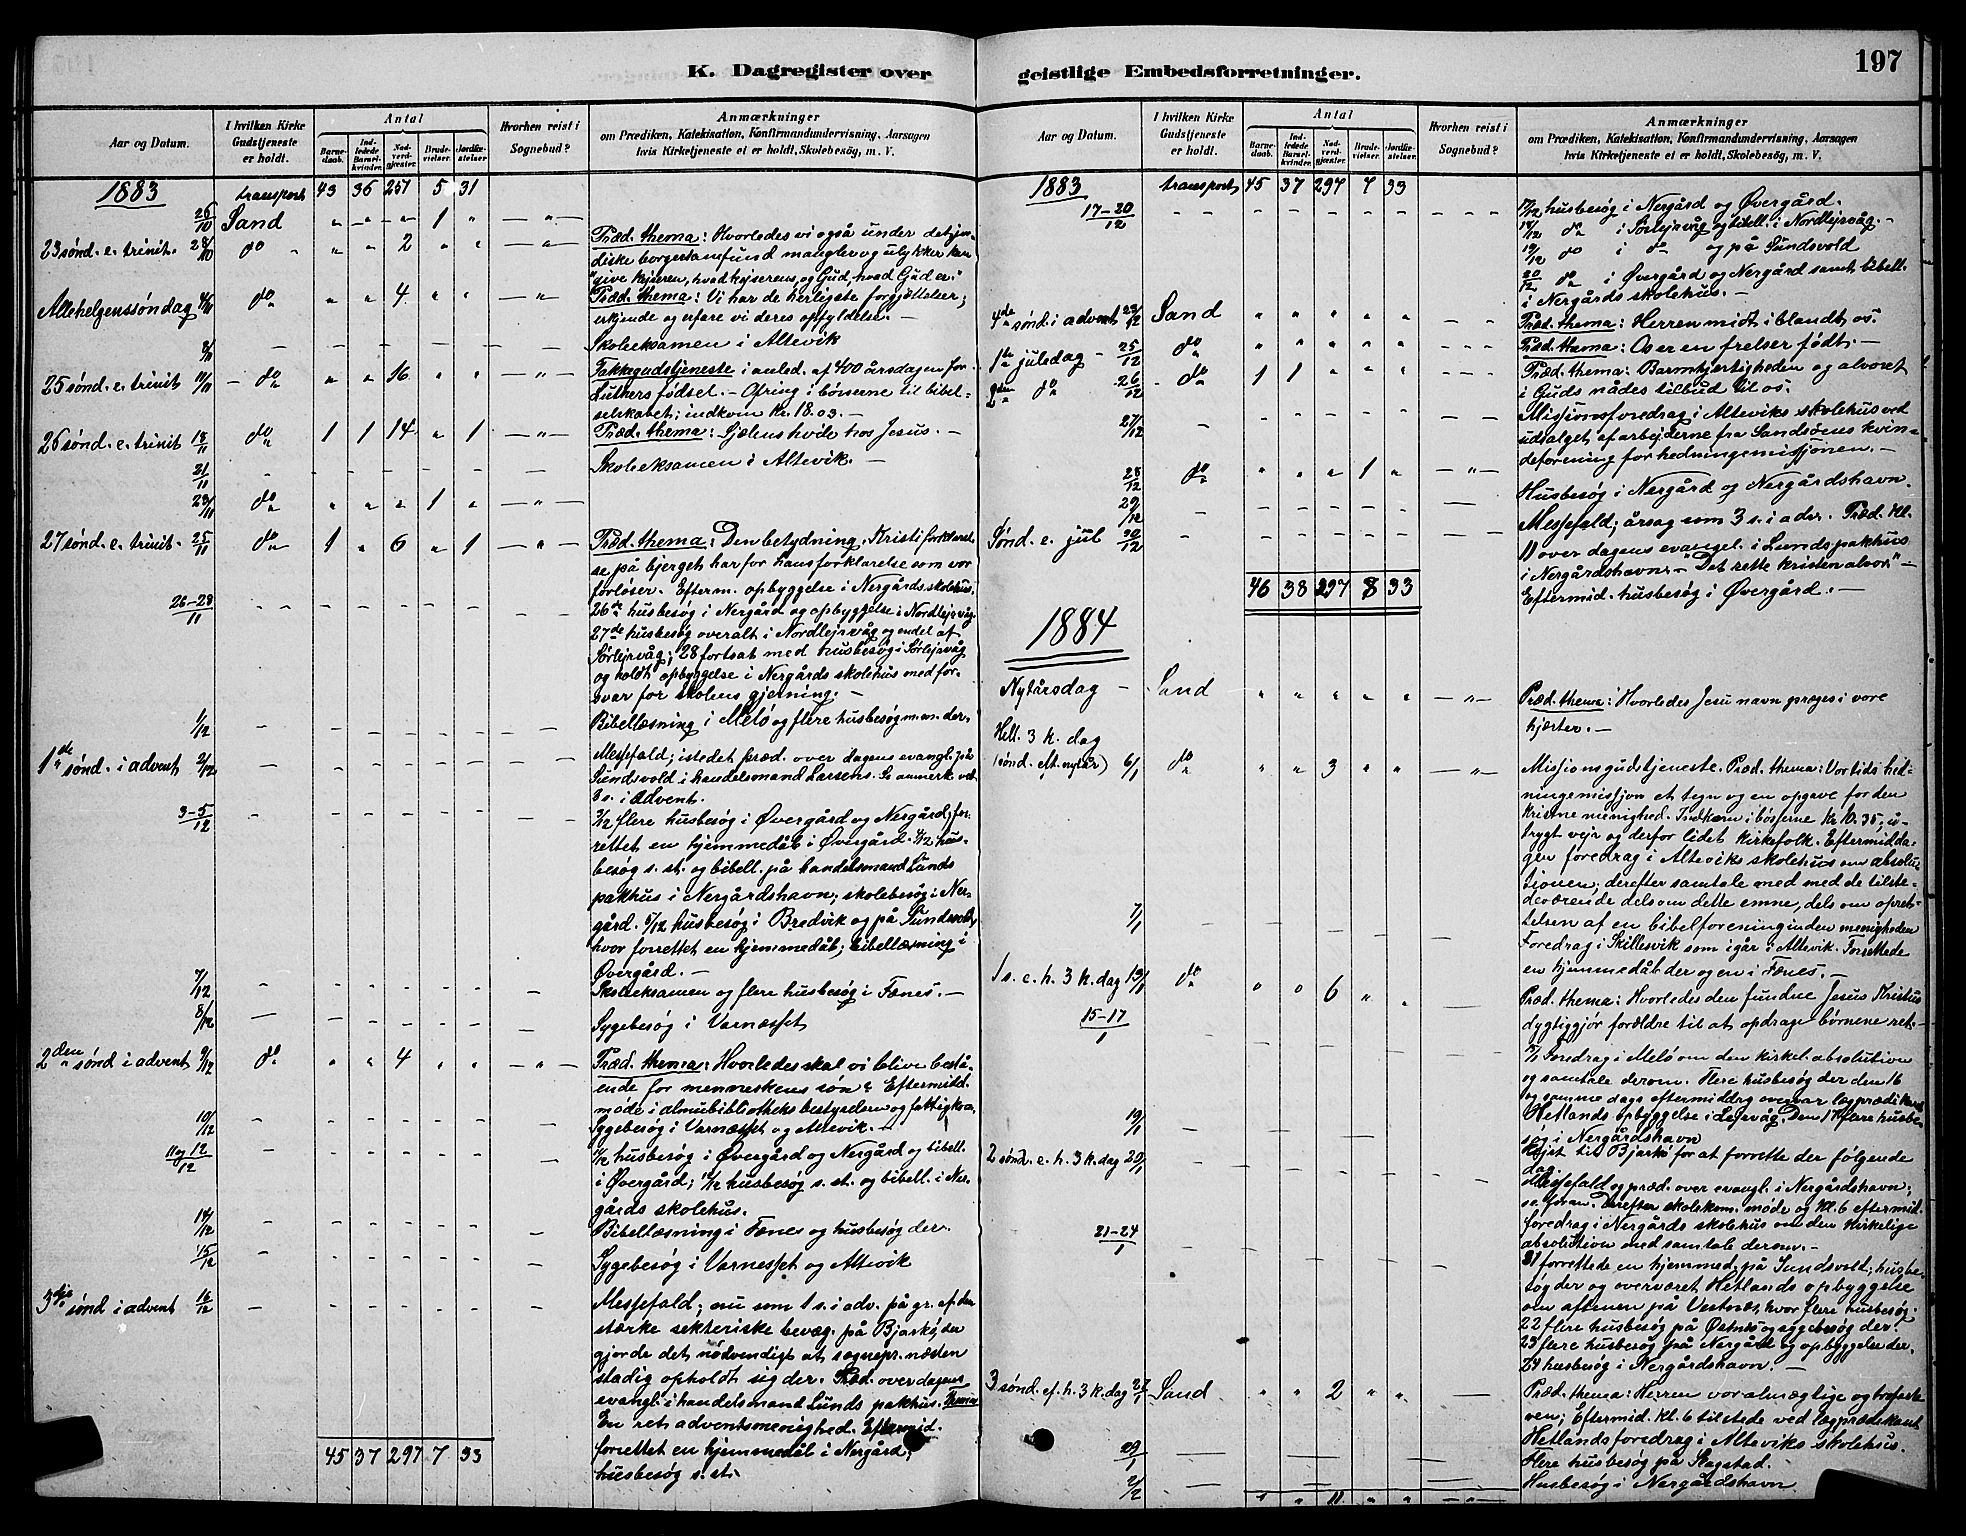 K. Dagregister over
Aar og Datum.
I hvilken Kirke Gudstjeneste er holdt.
Antal
Barnedaab.
Indledede Barselkvinder.
Nadverdgjester.
Brudevielser.
Jordfæstelser.
Hvorhen reist i Sognebud?
Anmærkninger
om Prædiken, Katekisation, Konfirmandundervisning, Aarsagen
hvis Kirketjeneste ei er holdt, Skolebesøg, m. V.
1883 transport 43 36 257 5 31
26/10 Sand " " " 1 " — " —
23 sønd. e. trinit. 28/10 do " " " 2 " " — " — Præd. thema: Hvorledes vi også under det jor-
diske borgersamfunds mangler og ulykker kan
"give kejseren, hvad kejserens, og Gud, hvad Guds er."
Allehelgenssøndag 4/11 do " " 4 " " — " — Præd. thema: Vi har de herligste forgjættelser;
erkjende og erfare vi deres opfyldelse. —
8/11 — Skoleeksamen i Altevik
25 sønd. e. trinit 11/11 — do " " 16 " " — " — Takkegudstjeneste i anled. af 400 årsdagen for
Luthers fødsel. — Ofring i bøsserne til bibel-
selskabet; indkom kr. 18.03. —
26 sønd. e. trinit 18/11 do 1 1 14 " 1 — " — Præd. thema: Sjælens hvile hos Jesus. —
21/11 — Skoleeksamen i Altevik. —
23/11 do " " " 1 " — " —
27 sønd. e. trinit. 25/11 do 1 " 6 " 1 — " — Præd. thema: Den betydning, Kristi forklarel-
se på bjerget har for hans forklarelse som vor
forløser. Efterm. opbyggelse i Nergårds skolehus.
26-28/11 26de husbesøg i Nergård og opbyggelse i Nordlejrvåg
27de husbesøg overalt i Nordlejrvåg og endel af
Sørlejrvåg; 28 fortsat med husbesøg i Sørlejrvåg
og holdt opbyggelse i Nergårds skolehus med for-
svar for skolens gjerning. —
1/12 — Bibellæsning i Melø og flere husbesøg m.m. der.
1de sønd. i advent 2/12 — Messefald; istedet præd. over dagens evangl. på
Sundsvold i handelsmand Larsens. Se anmerk. ved
3 s. i advent.
3-5/12 — 3/12 flere husbesøg i Øvergård og Nergård; for-
rettet en hjemmedåb i Øvergård. 4/12 hus-
besøg s. st. og bibell. på handelsmand Lunds
pakhus i Nergårdshavn; skolebesøg i Ner-
gård. 5/12 husbesøg i Bredvik og på Sundsvold,
hvor forrettet en hjemmedåb; bibellæsning i
Øvergård. —
7/12 — Skoleeksamen og flere husbesøg i Fænes. —
8/12 — Sygebesøg i Varnæsset
2den sønd i advent 9/12 do " " 4 " " — " — Præd. thema: Hvorledes skal vi blive bestå-
ende for menneskens søn? Eftermidd.
møde i almubibliotheksbestyrelsen og fattigkom.
10/12 — Sygebesøg i Varnæsset og Altevik. —
11 og 12/12 — 11/12 husbesøg i Øvergård og Nergård og bibell.
i Øvergård; 12/12 husbesøg s. st. og bibell. i Ner-
gårds skolehus.
14/12 — Bibellæsning i Fænes og husbesøg der.
15/12 — Sygebesøg i Varnesset og Altevik
3dje sønd i advent 16/12 — Messefald; nu som 1 s. i adv. på gr. af den
stærke sekteriske bevæg. på Bjarkø, der
gjorde det nødvendigt at sognepr. næsten
stadig opholdt sig der. Præd. over dagens
evangl. i handelsmand Lunds pakhus. Thema:
En ret adventsmenighed. Eftermid.
45 37 297 7 33 forrettet en hjemmedåb i Nergård;
husbesøg s. st.
geistlige Embedsforretninger.
197
Aar og Datum.
I hvilken Kirke Gudstjeneste er holdt.
Antal
Barnedaab.
Indledede Barselkvinder.
Nadverdgjester.
Brudevielser.
Jordfæstelser.
Hvorhen reist i Sognebud?
Anmærkninger
om Prædiken, Katekisation, Konfirmandundervisning, Aarsagen
hvis Kirketjeneste ei er holdt, Skolebesøg, m. V.
1883 transport 45 37 297 7 33
17-20/12 17/12 husbesøg i Nergård og Øvergård.
18/12 do i Sørlejrvåg og bibell. i Nordlejrvåg. —
19/12 do i do og på Sundsvold
20/12 do i Øvergård og Nergård samt bibell.
i Nergårds skolehus. —
4de sønd. i advent 23/12 Sand " " " " " — Præd. thema: Herren midt iblandt os.
1ste juledag — 25/12 do " " " " " — Præd. thema: Os er en frelser født. —
2den do 26/12 do 1 1 " " " — Præd. thema: Barmhjertigheden og alvoret
i Guds nådes tilbud til os.
27/12 — Missionsforedrag i Alteviks skolehus ved
udsalget af arbejderne fra Sandsøens kvin-
deforening for hedningemissjonen. —
28/12 do " " " 1 " — " —
29/12 — Husbesøg i Nergård og Nergårdshavn.
Sønd. e. jul 30/12 — Messefald; årsag som 3 s. i adv. Præd. kl.
11 over dagens evangel. i Lunds pakhus
i Nergårdshavn. — "Det rette kristenalvor." —
46 38 297 8 33 Eftermid. husbesøg i Øvergård. —
1884
Nytårsdag — Sand " " " " " — " — Præd. thema: Hvorledes Jesu navn præges i vore
hjerter. —
Hell. 3 k. dag
(sønd. eft. nytår) 6/1 do " " 3 " " — " — Missionsgudstjeneste. Præd. thema: Vor tids hed-
ningemissjon et tegn og en opgave for den
kristne menighed. Indkom i bøsserne kr 10.35; u-
trygt vejr og derfor lidet kirkefolk. Eftermidda-
gen foredrag i Alteviks skolehus om absolu-
tionen; derefter samtale med med de tilste-
deværende dels om dette emne, dels om opret-
telsen af en bibelforening inden menigheden
7/1 Foredrag i Skillesvik som igår i Altevik. Forrettede
en hjemmedåb der og en i Fænes. —
1 s. e. h. 3 k. dag 13/1 do " " 6 " " — Præd. thema: Hvorledes den fundne Jesus Kristus
dygtiggjør forældre til at opdrage børnene ret. —
15-17/1 15/1 Foredrag i Melø om den kirkel. absolution
og samtale derom. Flere husbesøg der den 16
og samme dags eftermiddag overvar lægprædikant
Hetlands opbyggelse i Lejrvåg. Den 17 flere husbe-
søg i Nergårdshavn
19/1 — Rejst til Bjarkø for at forrette der følgende
dag
2 sønd. e. h. 3 k. dag 20/1 — Messefald og præd. over evangl. i Nergårdshavn;
se foran. Derefter skolekom. møde og kl. 6 eftermid.
foredrag i Nergårds skolehus om den kirkelige
absolution med samtale derom. —
21-24/1 — 21 forrettede en hjemmed. på Sundsvold; husbe-
søg der og overværet Hetlands opbyggelse
om aftenen på Vestnæs, hvor flere husbesøg.
22 flere husbesøg på Østnes og sygebesøg der.
23 flere husbesøg på Nergård og opbyggelse der.
24 husbesøg i Nergårdshavn. —
3 sønd. ef. h. 3 k. dag 27/1 Sand " " 2 " " — Præd. thema: Herren vor almægtige og trofaste
ven; Eftermid. kl. 6 tilstede ved lægprædikant
Hetlands foredrag i Alteviks skolehus.
29/1 — Flere husbesøg på Stagstad.
2/2 Husbesøg i Nergårdshavn
" " 11 " " — " —